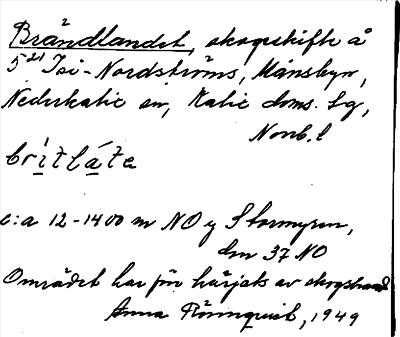 Brändlandet, skogsskifte å
5²¹ Isi-Nordströms, Månsbyn,
Nederkalix sn, Kalix doms. lg,
Norrb. l
britláta
c:a 12-1400 m NO y Stormyren,
dm 37 NO
Området har för härjats av skogsbrand
Anna Rönnquist, 1949